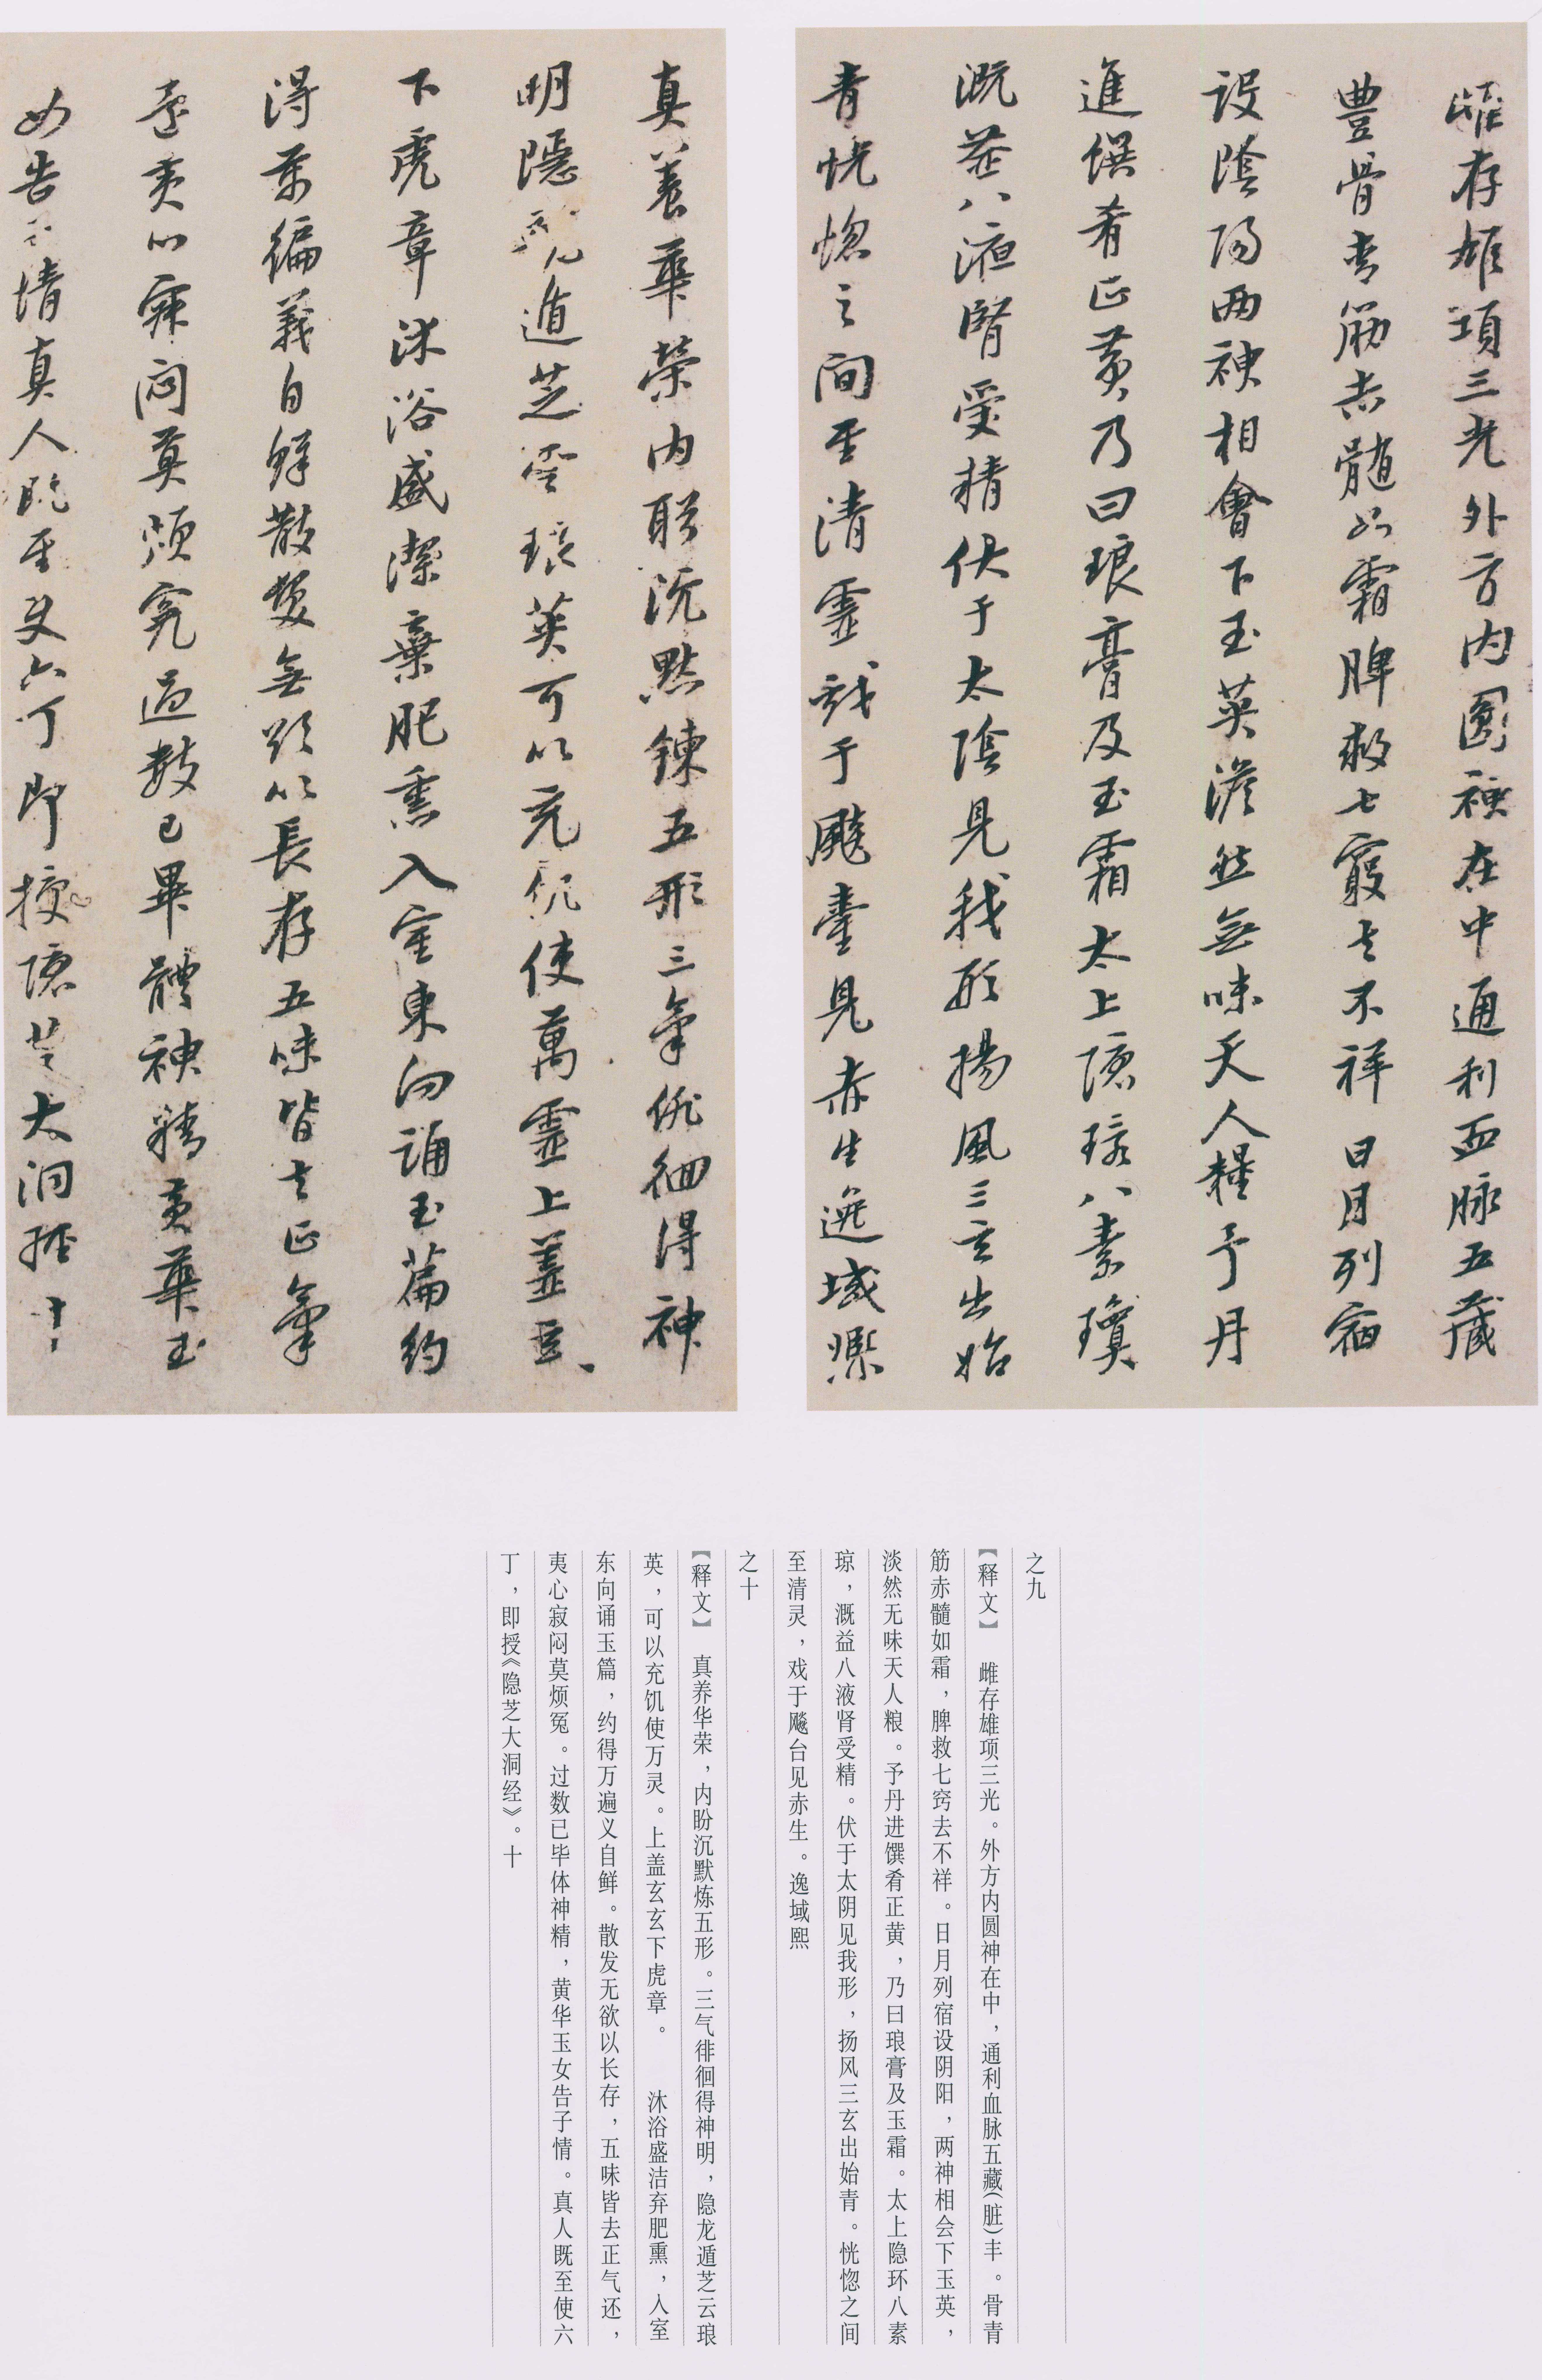 雌存雄項三光外方内圓神在中通利血脉五藏
豊骨青筋赤髄如霜脾救七竅去不祥日月列宿
設陰陽兩神相會下玉英淡然無味天人糧予丹
進饌肴正黄乃曰琅膏及玉霜太上隱環八素瓊
溉益八液腎受精伏于太陰見我形揚風三玄出始
青恍惚之間至清靈戲于飈臺見赤生逸域熙
真養華榮内盼沉默鍊五形三氣徘徊得神
明隱龍遁芝雲琅英可以充飢使萬靈上盖玄玄
下虎章沐浴盛潔棄肥熏入室東向誦玉篇約
得萬徧義自鮮散髮無欲以長存五味皆去正氣
還夷心寂悶莫煩冤過數已畢體神精黄華玉
女告子情真人既至使六丁即授隱芝大洞經十
之九
【释文】 雌存雄项三光。外方内圆神在中，通利血脉五藏(脏)丰。骨青
筋赤髓如霜，脾救七窍去不祥。日月列宿设阴阳，两神相会下玉英，
淡然无味天人粮。予丹进馔肴正黄，乃曰琅膏及玉霜。太上隐环八素
琼，溉益八液肾受精。伏于太阴见我形，扬风三玄出始青。恍惚之间
至清灵，戏于飚台见赤生。逸域熙
之十
【释文】 真养华荣，内盼沉默炼五形。三气徘徊得神明，隐龙遁芝云琅
英，可以充饥使万灵。上盖玄玄下虎章。 沐浴盛洁弃肥熏，入室
东向诵玉篇，约得万遍义自鲜。散发无欲以长存，五味皆去正气还，
夷心寂闷莫烦冤。过数已毕体神精，黄华玉女告子情。真人既至使六
丁，即授《隐芝大洞经》。十